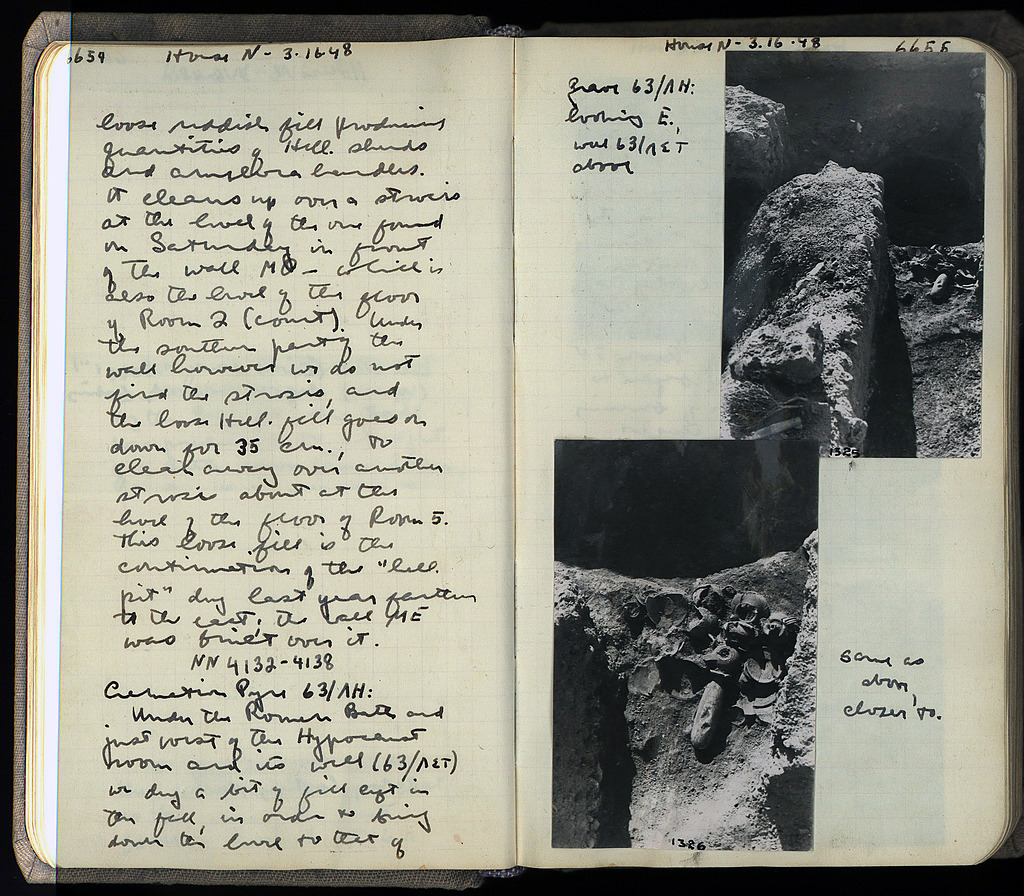 6654 House N - 3.16.48
loose reddish fill producing
quantities of Hell. sherds
and amphora handles.
It cleans up over a strosis
at the level of the one found
on Saturday in front
of the wall ME - which is
also the level of the floor
of Room 2 (court). Under
the southern part of the
wall however we do not
find the strosis, and
the loose Hell. fill goes on
down for 35 cm., to
clean away over another
strosis about at the
level of the floor of Room 5.
This loose fill is the
continuation of the "hell.
pit" dug last year farther
to the east; the wall ME
was built over it.
NN 4132-4138
Cremation Pyre 63/ΛΗ:
Under the Roman Bath and
just west of the Hypocaust
room and its wall (63/ΛΣΤ)
we dug a bit of fill left in
the fill, in order to bring
down the level to that of
House N - 3.16.48 6655
Grave 63/ΛΗ:
looking E.,
wall 63/ΛΣΤ
above
1325
1326
Same as
above,
closer to.